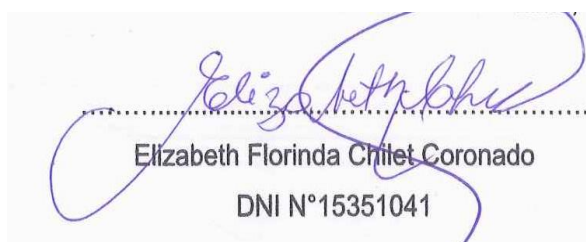 Elizabeth
Elizabeth Florinda Chilet Coronado
DNI N°15351041